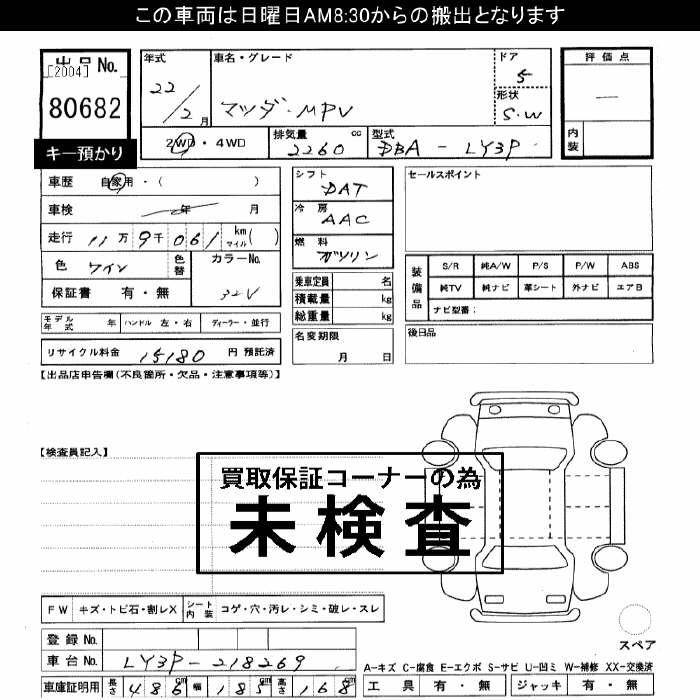 この車両は日曜日AM8:30からの搬出となります
出品No.
[2004]
80682
キー預かり
年式
22/2月
車名・グレード
マツダ・MPV
ドア
5
形状
S・W
評価点
—
内装
2WD・4WD
排気量 2260 cc
型式 DBA-LY3P
車歴 自家用・( )
車検 年 月
走行 11万9千061 km マイル ( )
色 ワイン
色替
カラーNo.
32V
保証書 有・無
モデル年式 年 ハンドル 左・右 ディーラー・並行
リサイクル料金 15180 円 預託済
シフト
DAT
冷房
AAC
燃料
ガソリン
乗車定員 名
積載量 kg
総重量 kg
名変期限
月 日
セールスポイント
装備品
S/R 純A/W P/S P/W ABS
純TV 純ナビ 革シート 外ナビ エアB
ナビ型番:
後日品
【出品店申告欄(不良箇所・欠品・注意事項等)】
【検査員記入】
買取保証コーナーの為
未検査
FW キズ・トビ石・割レX シート内装 コゲ・穴・汚レ・シミ・破レ・スレ
登録No.
車台No. LY3P-218269
車庫証明用 長さ 486cm 幅 185cm 高さ 168cm
スペア
A-キズ C-腐食 E-エクボ S-サビ U-凹ミ W-補修 XX-交換済
工具 有・無 ジャッキ 有・無